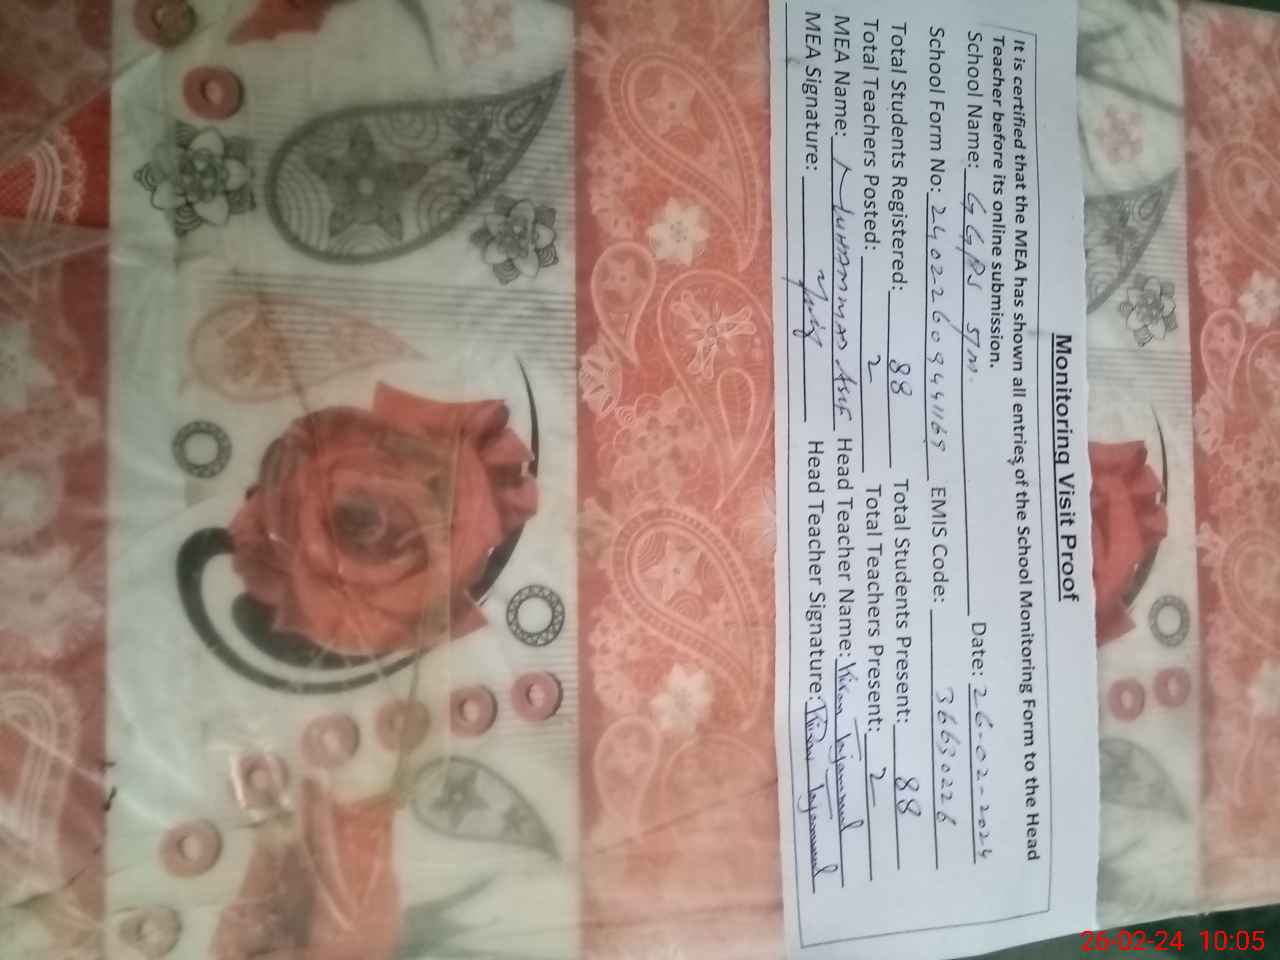 Monitoring Visit Proof
It is certified that the MEA has shown all entries of the School Monitoring Form to the Head
Teacher before its online submission.
School Name: GGPS 5/M. Date: 26-02-2024
School Form No: 240226094441169 EMIS Code: 36630226
Total Students Registered: 88 Total Students Present: 88
Total Teachers Posted: 2 Total Teachers Present: 2
MEA Name: MUHAMMAD ASIF Head Teacher Name: Kiran Tajammul
MEA Signature: Head Teacher Signature: Kiran Tajammul
26-02-24 10:05